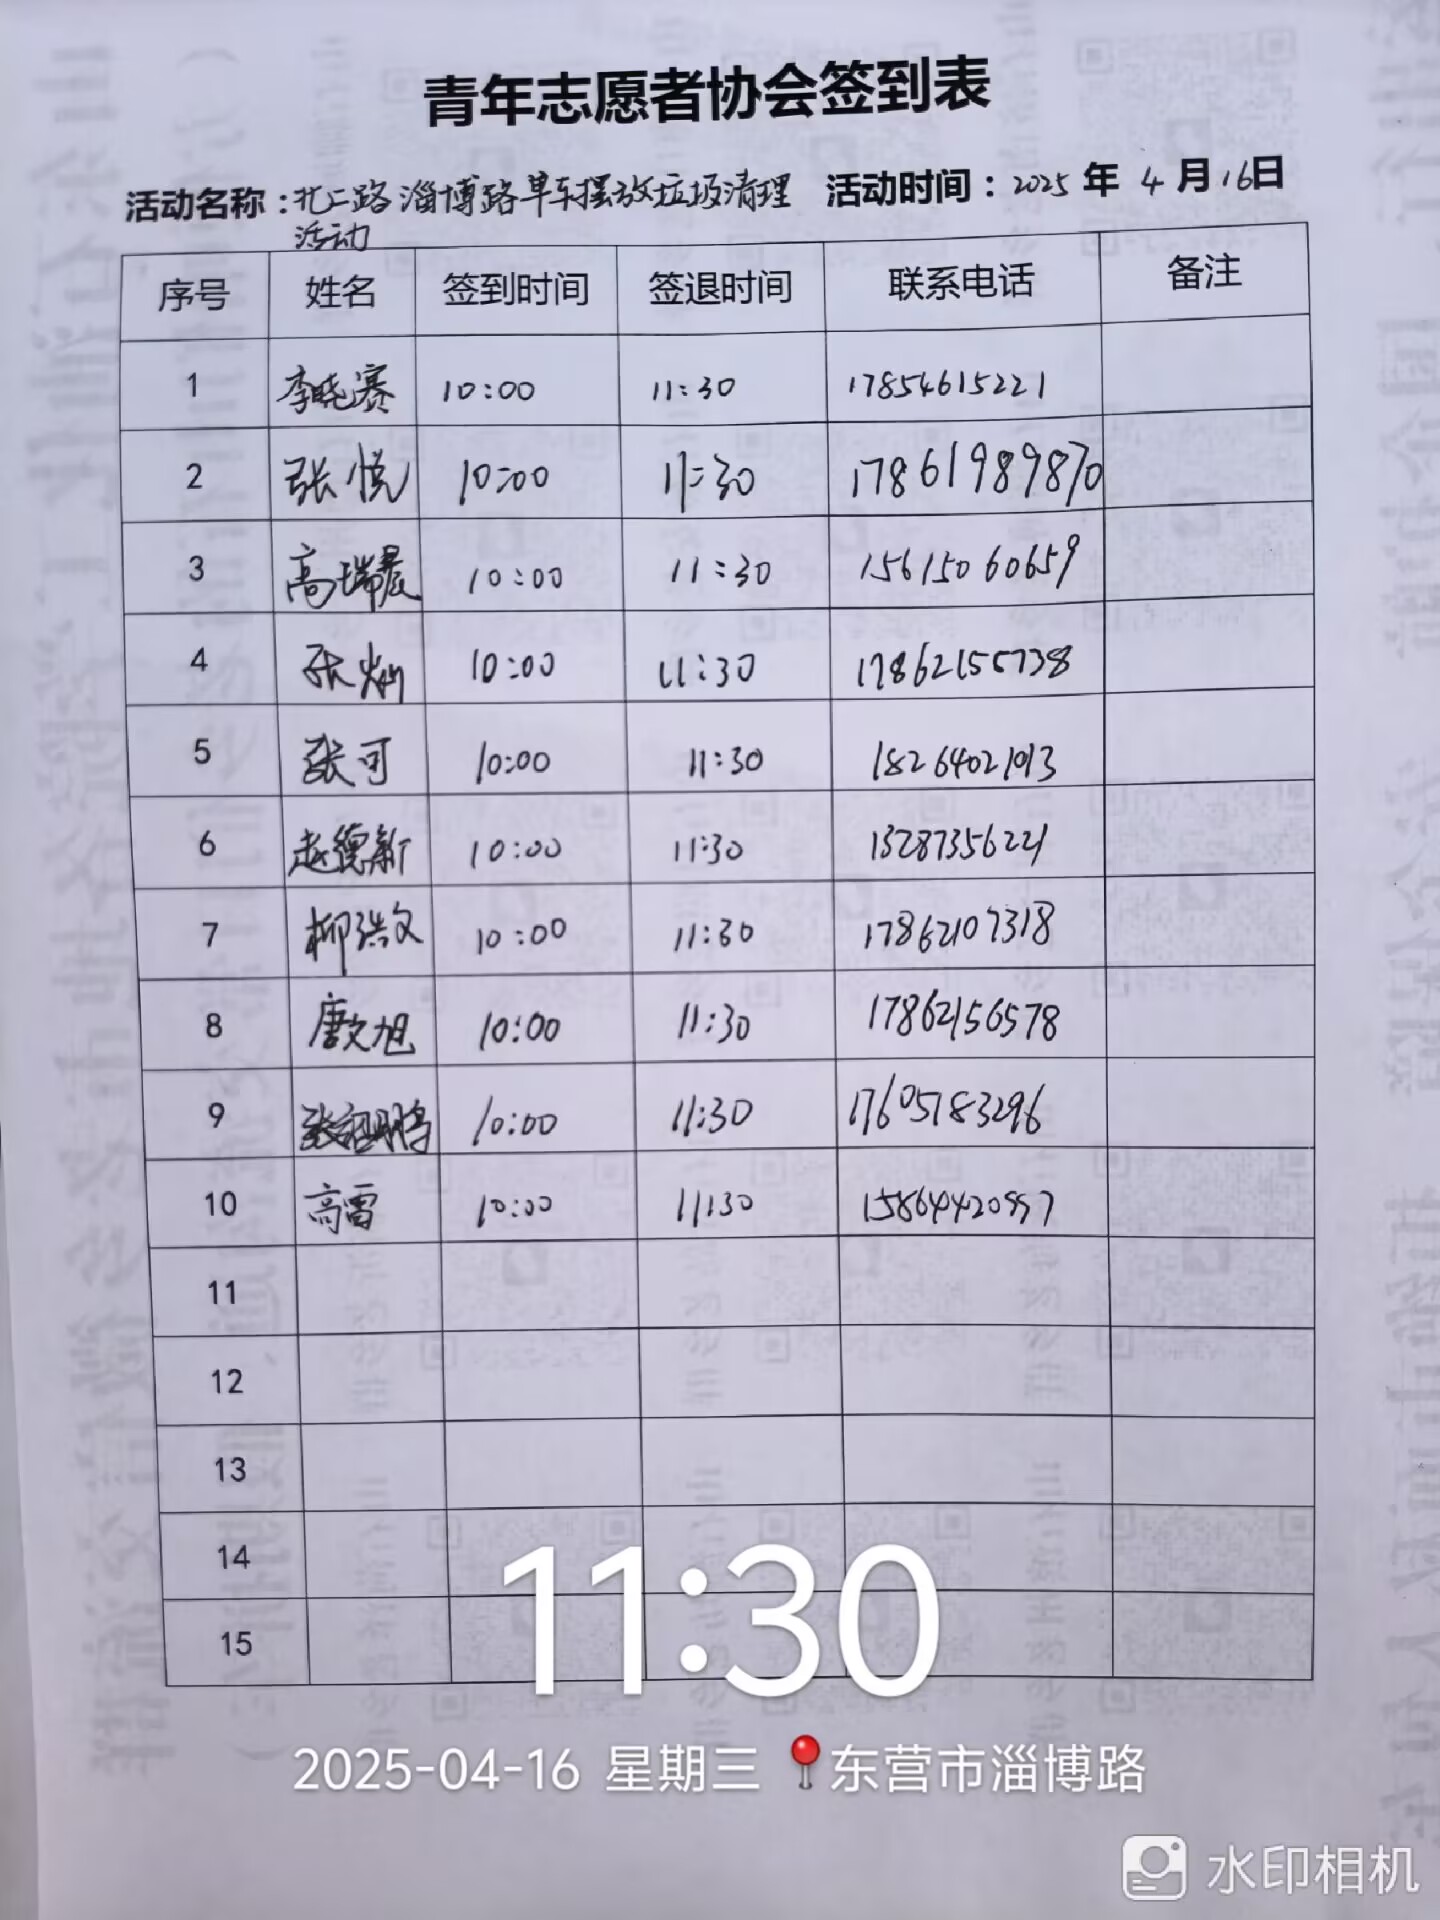 青年志愿者协会签到表
活动名称：北二路淄博路单车摆放垃圾清理 活动时间：2025年4月16日
活动
序号 姓名 签到时间 签退时间 联系电话 备注
1 李晓赛 10:00 11:30 17854615221
2 张悦 10:00 11:30 17861989870
3 高瑞晨 10:00 11:30 15615060659
4 张灿 10:00 11:30
5 张可 10:00 11:30 18264021013
6 赵德新 10:00 11:30 13287356221
7 柳浩文 10:00 11:30 17862107318
8 唐文旭 10:00 11:30 17862156578
9 10:00 11:30 17605783296
10 高雷 10:00 11:30
11
12
13
14
15
11:30
2025-04-16 星期三 东营市淄博路
水印相机